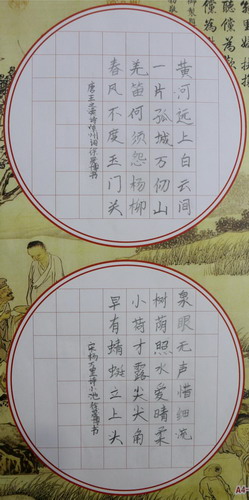 黄河远上白云间
一片孤城万仞山
羌笛何须怨杨柳
春风不度玉门头
唐王之涣诗凉州词
泉眼无声惜细流
树荫照水爱晴柔
小荷才露尖尖角
早有蜻蜓立上头
宋杨万里诗小池
A4